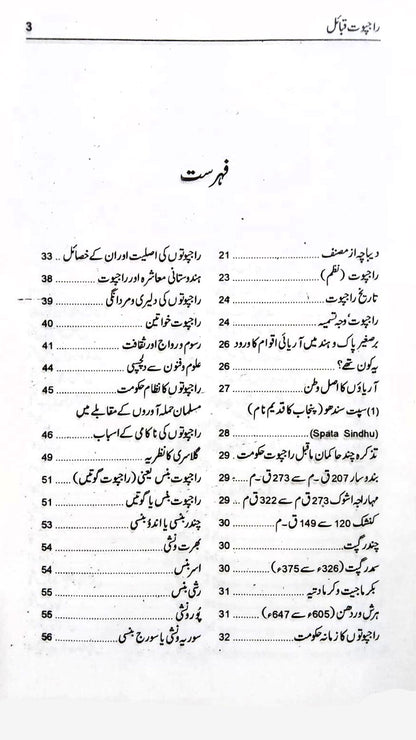 راجپوت قبائل
3
فہرست
دیباچہ از مصنف ........ 21
راجپوت (نظم) ........ 23
تاریخ راجپوت ........ 24
راجپوت، وجہ تسمیہ ........ 24
برصغیر پاک و ہند میں آریائی اقوام کا ورود 26
یہ کون تھے؟ ........ 26
آریاؤں کا اصل وطن ........ 27
(1) سپت سندھو (پنجاب کا قدیم نام)
(Spata Sindhu) ........ 28
تذکرہ چند حاکمان ماقبل راجپوت حکومت . 29
بندوسار 207 ق-م سے 273 ق-م ... 29
مہاراجہ اشوک 273 ق م سے 322 ق م .. 29
کنشک 120 سے 149 ق-م ........ 30
چندر گپت ........ 30
سمدر گپت (326ء سے 375ء) ........ 30
بکرماجیت وکرمادتیہ ........ 31
ہرش وردھن (605ء سے 647ء) ........ 31
راجپوتوں کا زمانہ حکومت ........ 32
راجپوتوں کی اصلیت اور ان کے خصائل .. 33
ہندوستانی معاشرہ اور راجپوت ........ 38
راجپوتوں کی دلیری و مردانگی ........ 39
راجپوت خواتین ........ 40
رسوم و رواج اور ثقافت ........ 41
علوم و فنون سے دلچسپی ........ 44
راجپوتوں کا نظام حکومت ........ 45
مسلمان حملہ آوروں کے مقابلے میں
راجپوتوں کی ناکامی کے اسباب ........ 46
گلاسری کا نظریہ ........ 49
راجپوت بنس یعنی (راجپوت گوتیں) ... 51
راجپوت بنس یا گوتیں ........ 51
چندر بنسی یا اندو بنسی ........ 53
بھرت ونشی ........ 54
اسر بنس ........ 54
رشی بنس ........ 55
پُورونشی ........ 55
سوریہ ونشی یا سورج بنسی ........ 56